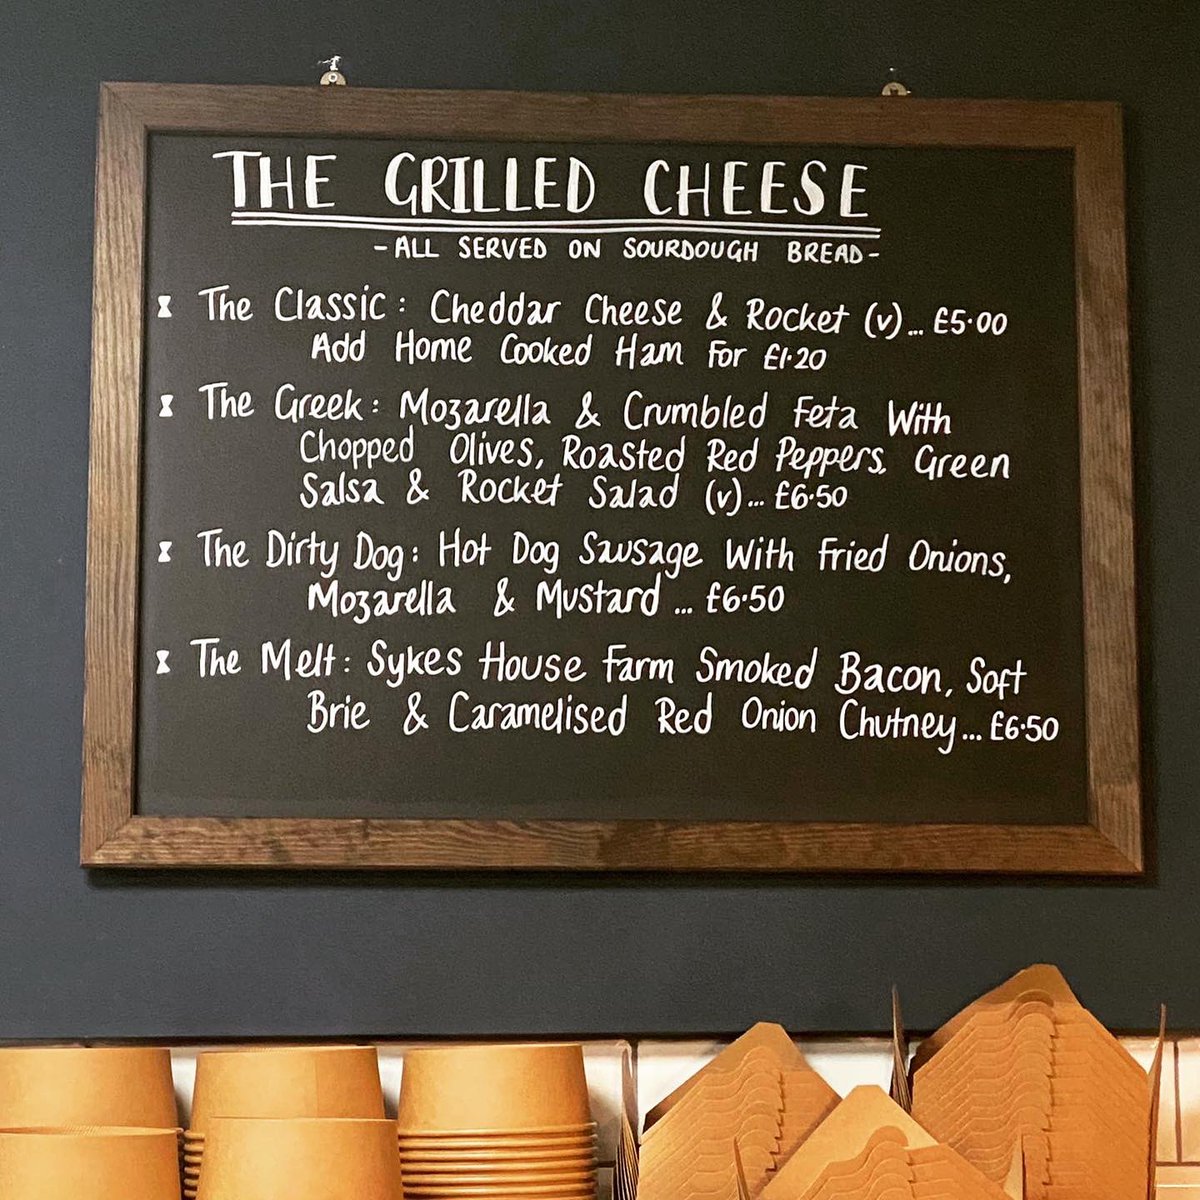 THE GRILLED CHEESE
-ALL SERVED ON SOURDOUGH BREAD-
The Classic: Cheddar Cheese & Rocket (v)... £5.00
Add Home Cooked Ham For £1.20
The Greek: Mozarella & Crumbled Feta With
Chopped Olives, Roasted Red Peppers, Green
Salsa & Rocket Salad (v)... £6.50
The Dirty Dog: Hot Dog Sausage With Fried Onions,
Mozarella & Mustard ... £6.50
The Melt: Sykes House Farm Smoked Bacon, Soft
Brie & Caramelised Red Onion Chutney... £6.50